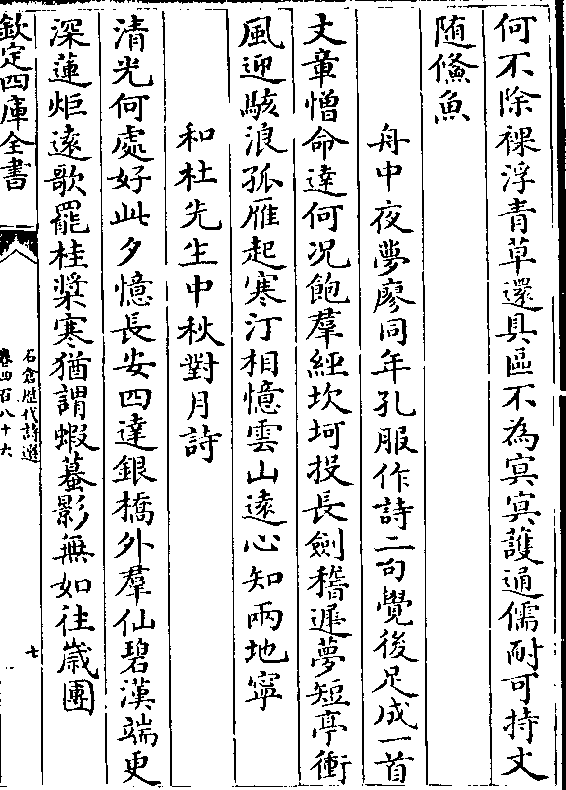 何不除祼浮青草還具區不為㝠㝠護通儒耐可持丈
随鯈魚
舟中夜夢廖同年孔服作詩二句覺後足成一首
文章憎命達何况飽羣經坎坷投長劍稽遲夢短亭衝
風迎駭浪孤雁起寒汀相憶雲山遠心知兩地寧
和杜先生中秋對月詩
清光何處好此夕憶長安四達銀橋外羣仙碧漢端更
深蓮炬遠歌罷桂槳寒猶謂蝦蟇影無如往嵗團
欽定四庫全書
石倉歴代詩選
卷四百八十六
七